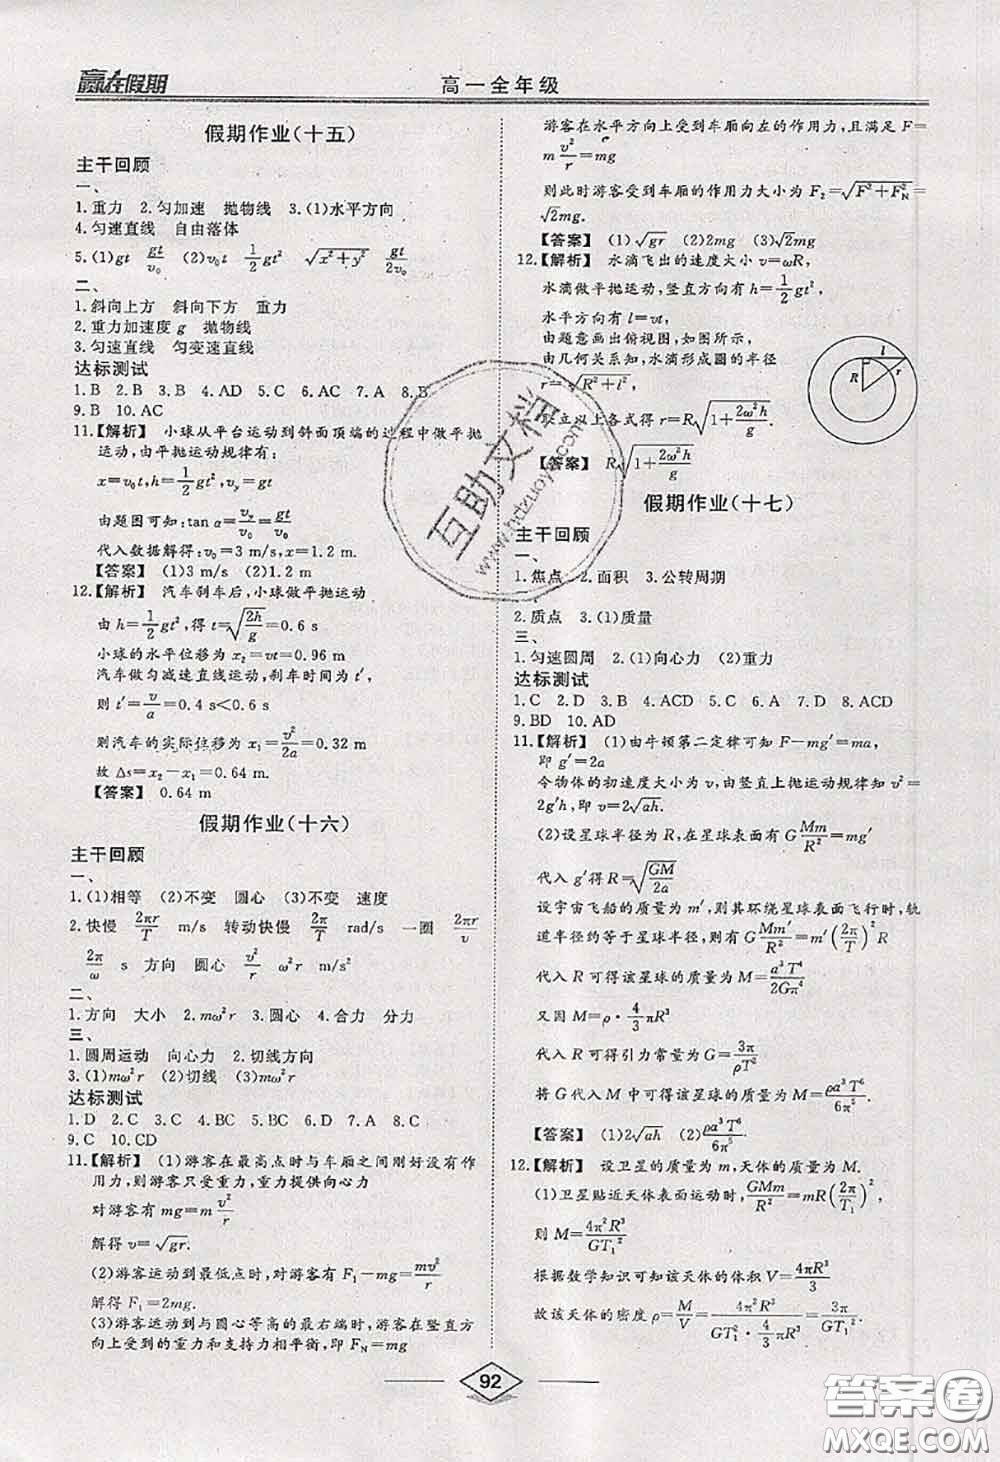 赢在假期
高一全年级
假期作业(十五)
主干回顾
一、
1.重力 2.匀加速 抛物线 3.(1)水平方向
4.匀速直线 自由落体
5.(1)gt gt/v₀ (2)v₀t 1/2gt² √(x²+y²) gt/2v₀
二、
1.斜向上方 斜向下方 重力
2.重力加速度 g 抛物线
3.匀速直线 匀变速直线
达标测试
1.B 2.B 3.B 4.AD 5.C 6.AC 7.A 8.B
9.B 10.AC
11.【解析】 小球从平台运动到斜面顶端的过程中做平抛
运动,由平抛运动规律有:
x=v₀t,h=1/2gt²,v_y=gt
由题图可知:tan α=v_y/v₀=gt/v₀
代入数据解得:v₀=3 m/s,x=1.2 m.
【答案】 (1)3 m/s (2)1.2 m
12.【解析】 汽车刹车后,小球做平抛运动
由 h=1/2gt²,得 t=√(2h/g)=0.6 s
小球的水平位移为 x₂=vt=0.96 m
汽车做匀减速直线运动,刹车时间为 t′,
则 t′=v/a=0.4 s<0.6 s
则汽车的实际位移为 x₁=v²/2a=0.32 m
故 Δs=x₂-x₁=0.64 m.
【答案】 0.64 m
假期作业(十六)
主干回顾
一、
1.(1)相等 (2)不变 圆心 (3)不变 速度
2.快慢 2πr/T m/s 转动快慢 2π/T rad/s 一圈 2πr/v
2π/ω s 方向 圆心 v²/r ω²r m/s²
二、
1.方向 大小 2.mω²r 3.圆心 4.合力 分力
三、
1.圆周运动 向心力 2.切线方向
3.(1)mω²r (2)切线 (3)mω²r
达标测试
1.D 2.C 3.C 4.BC 5.BC 6.D 7.A 8.C
9.C 10.CD
11.【解析】 (1)游客在最高点时与车厢之间刚好没有作
用力,则游客只受重力,重力提供向心力
对游客有 mg=mv²/r
解得 v=√gr.
(2)游客运动到最低点时,对游客有 F₁-mg=mv²/r
解得 F₁=2mg.
(3)游客运动到与圆心等高的最右端时,游客在竖直方
向上受到的重力和支持力相平衡,即 F_N=mg
游客在水平方向上受到车厢向左的作用力,且满足 F=
mv²/r=mg
则此时游客受到车厢的作用力大小为 F₂=√(F²+F_N²)=
√2mg.
【答案】 (1)√gr (2)2mg (3)√2mg
12.【解析】 水滴飞出的速度大小 v=ωR,
水滴做平抛运动,竖直方向有 h=1/2gt²,
水平方向有 l=vt,
由题意画出俯视图,如图所示.
由几何关系知,水滴形成圆的半径
r=√(R²+l²),
联立以上各式得 r=R√(1+2ω²h/g).
【答案】 R√(1+2ω²h/g)
l
R
r
假期作业(十七)
主干回顾
一、
1.焦点 2.面积 3.公转周期
2.质点 3.(1)质量
三、
1.匀速圆周 2.(1)向心力 (2)重力
达标测试
1.C 2.D 3.B 4.ACD 5.C 6.A 7.D 8.ACD
9.BD 10.AD
11.【解析】 (1)由牛顿第二定律可知 F-mg′=ma,
即 g′=2a
令物体的初速度大小为 v,由竖直上抛运动规律 v²=
2g′h,即 v=2√ah.
(2)设星球半径为 R,在星球表面有 GMm/R²=mg′
代入 g′得 R=√(GM/2a)
设宇宙飞船的质量为 m′,则其环绕星球表面飞行时,轨
道半径约等于星球半径,则有 GMm′/R²=m′(2π/T)²R
代入 R 可得该星球的质量为 M=a³T⁴/2Gπ⁴
又因 M=ρ·4/3πR³
代入 R 可得引力常量为 G=3π/ρT²,
将 G 代入 M 中可得该星球的质量为 M=ρa³T⁶/6π⁵.
【答案】 (1)2√ah (2)ρa³T⁶/6π⁵
12.【解析】 设卫星的质量为 m,天体的质量为 M.
(1)卫星贴近天体表面运动时,有 GMm/R²=mR(2π/T₁)²,
则 M=4π²R³/GT₁²
根据数学知识可知该天体的体积 V=4πR³/3
故该天体的密度 ρ=M/V=4π²R³/(GT₁²·4/3πR³)=3π/GT₁².
92
互助文档
www.hdzuoye.com
答案圈
MXQE.COM